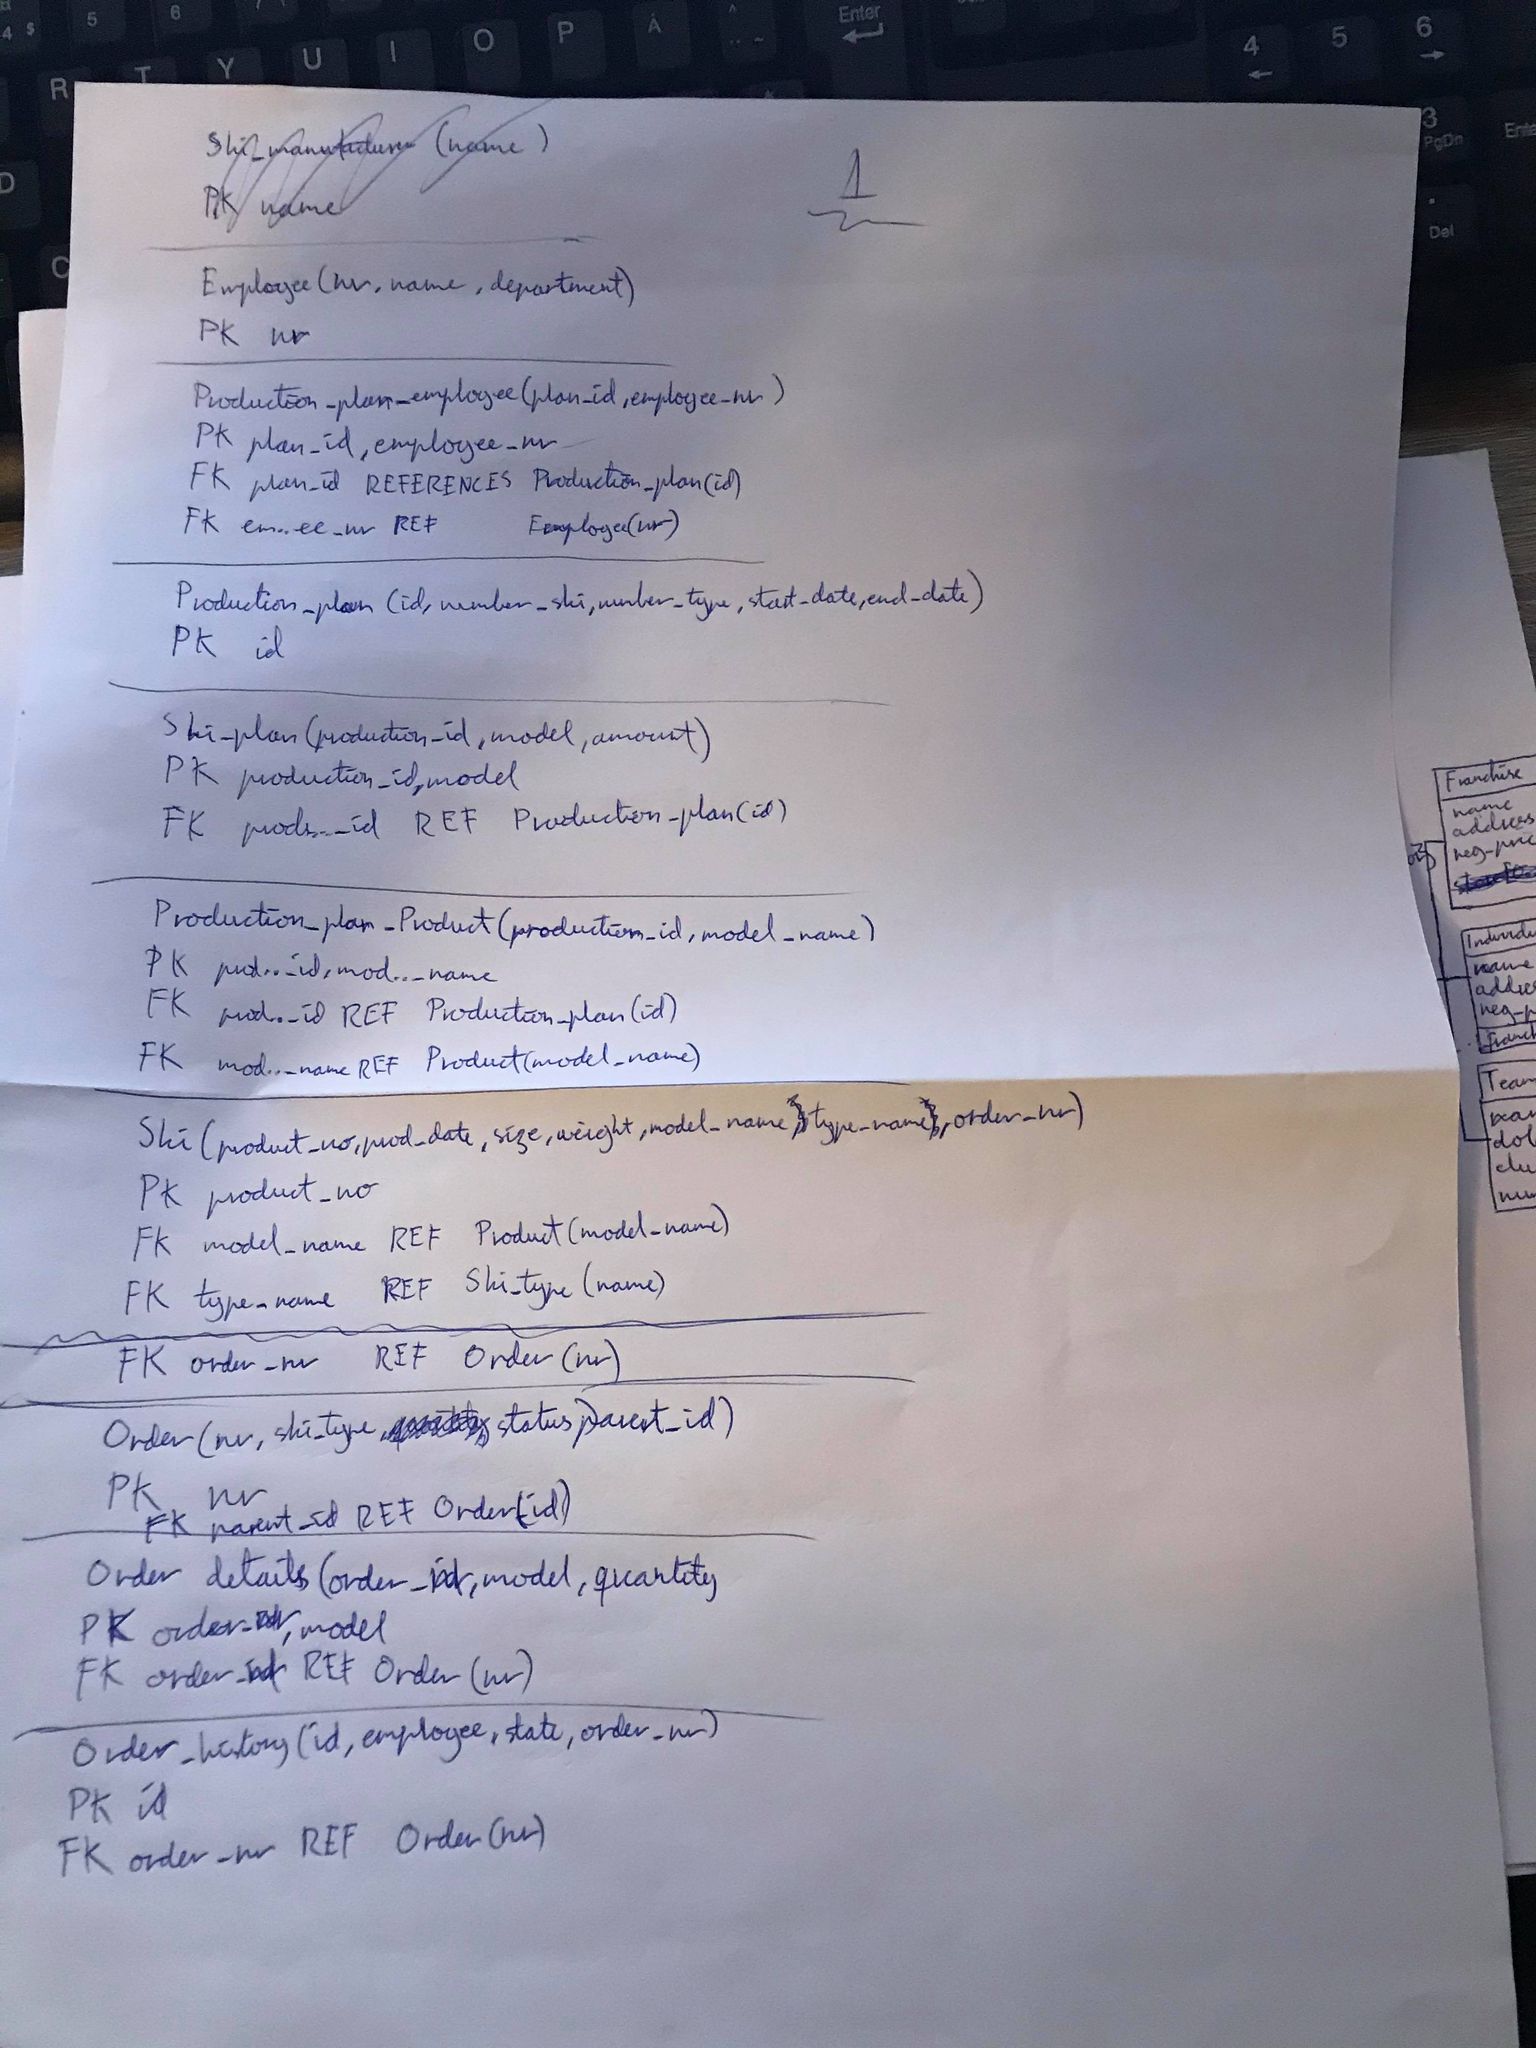 4 $
5
6
7 /
Enter
R T Y U I O P Å ^ .. ~
4
5
6
D
3
PgDn
Ente
.
Del
C
Ski_manufacturer (name)
PK name
1
Employee(nr, name, department)
PK nr
Production_plan_employee(plan_id, employee_nr)
PK plan_id, employee_nr
FK plan_id REFERENCES Production_plan(id)
FK em...ee_nr REF Employee(nr)
Production_plan (id, number_ski, number_type, start_date, end_date)
PK id
Ski_plan(production_id, model, amount)
PK production_id, model
FK prod..._id REF Production_plan(id)
Production_plan_Product(production_id, model_name)
PK prod..._id, mod..._name
FK prod..._id REF Production_plan(id)
FK mod..._name REF Product(model_name)
Ski(product_no, prod_date, size, weight, model_name, type_name, order_nr)
PK product_no
FK model_name REF Product(model_name)
FK type_name REF Ski_type (name)
FK order_nr REF Order(nr)
Order(nr, ski_type, status, parent_id)
PK nr
FK parent_id REF Order(id)
Order details(order_nr, model, quantity
PK order_nr, model
FK order_nr REF Order(nr)
Order_history(id, employee, state, order_nr)
PK id
FK order_nr REF Order(nr)
Franchise
name
address
neg_pric
Individu
name
addres
neg_p
Franch
Team
nam
dob
clu
num